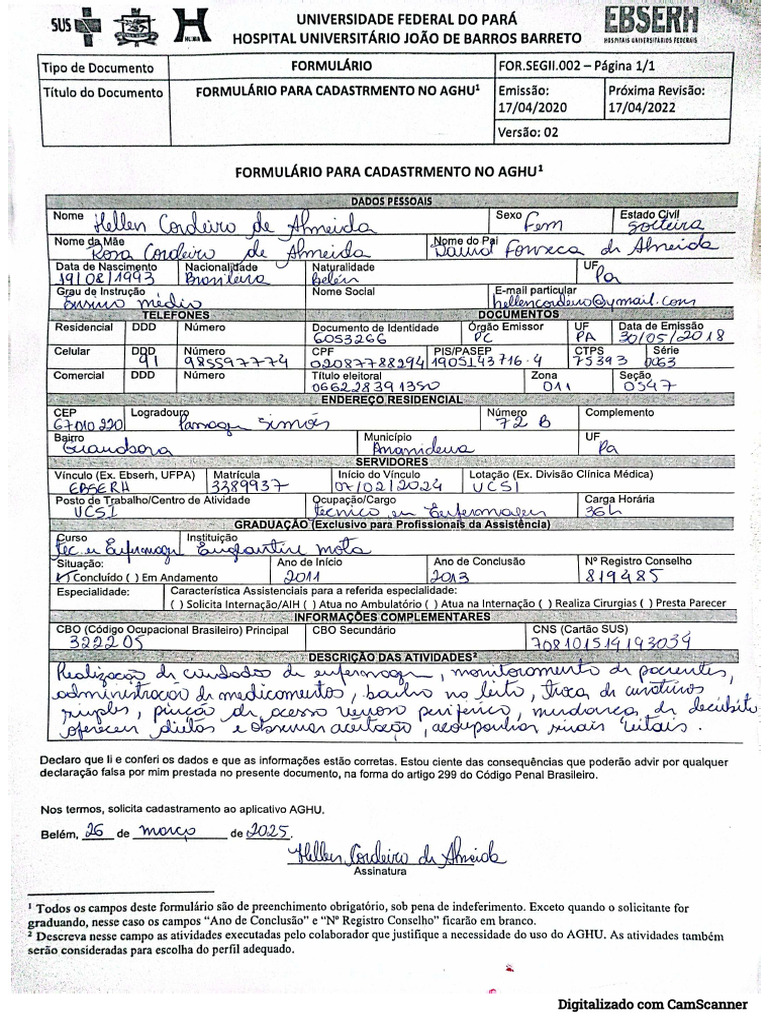 SUS
UNIVERSIDADE FEDERAL DO PARÁ
HOSPITAL UNIVERSITÁRIO JOÃO DE BARROS BARRETO
EBSERH
HOSPITAIS UNIVERSITÁRIOS FEDERAIS
Tipo de Documento FORMULÁRIO FOR.SEGII.002 – Página 1/1
Título do Documento FORMULÁRIO PARA CADASTRMENTO NO AGHU¹ Emissão: Próxima Revisão:
17/04/2020 17/04/2022
Versão: 02
FORMULÁRIO PARA CADASTRMENTO NO AGHU¹
DADOS PESSOAIS
Nome Sexo Estado Civil
Hellen Cordeiro de Almeida Fem solteira
Nome da Mãe Nome do Pai
Rosa Cordeiro de Almeida David Fonseca de Almeida
Data de Nascimento Nacionalidade Naturalidade UF
19/08/1993 Brasileira Belém Pa
Grau de Instrução Nome Social E-mail particular
Ensino médio hellencordeiro@ymail.com
TELEFONES DOCUMENTOS
Residencial DDD Número Documento de Identidade Órgão Emissor UF Data de Emissão
6053266 PC PA 30/05/2018
Celular DDD Número CPF PIS/PASEP CTPS Série
91 985597774 02087788294 1905143716-4 75393 0063
Comercial DDD Número Título eleitoral Zona Seção
066228391350 011 0547
ENDEREÇO RESIDENCIAL
CEP Logradouro Número Complemento
67010220 Simões 72 B
Bairro Município UF
Guanabara Ananindeua Pa
SERVIDORES
Vínculo (Ex. Ebserh, UFPA) Matrícula Início do Vínculo Lotação (Ex. Divisão Clínica Médica)
EBSERH 3389937 02/2024 UCSI
Posto de Trabalho/Centro de Atividade Ocupação/Cargo Carga Horária
UCSI tecnico em Enfermagem 36h
GRADUAÇÃO (Exclusivo para Profissionais da Assistência)
Curso Instituição
tec. em Enfermagem Mota
Situação: Ano de Início Ano de Conclusão Nº Registro Conselho
(✓) Concluído ( ) Em Andamento 2011 2013 819485
Especialidade: Característica Assistenciais para a referida especialidade:
( ) Solicita Internação/AIH ( ) Atua no Ambulatório ( ) Atua na Internação ( ) Realiza Cirurgias ( ) Presta Parecer
INFORMAÇÕES COMPLEMENTARES
CBO (Código Ocupacional Brasileiro) Principal CBO Secundário CNS (Cartão SUS)
322205 708101519193039
DESCRIÇÃO DAS ATIVIDADES²
Realização de cuidados de enfermagem, monitoramento de pacientes,
administração de medicamentos, banho no leito, troca de curativos
simples, punção de acesso venoso periférico, mudança de decúbito
oferecer dietas e observar aceitação, acompanhar sinais vitais.
Declaro que li e conferi os dados e que as informações estão corretas. Estou ciente das consequências que poderão advir por qualquer
declaração falsa por mim prestada no presente documento, na forma do artigo 299 do Código Penal Brasileiro.
Nos termos, solicita cadastramento ao aplicativo AGHU.
Belém, 26 de março de 2025.
Hellen Cordeiro de Almeida
Assinatura
¹ Todos os campos deste formulário são de preenchimento obrigatório, sob pena de indeferimento. Exceto quando o solicitante for
graduando, nesse caso os campos “Ano de Conclusão” e “Nº Registro Conselho” ficarão em branco.
² Descreva nesse campo as atividades executadas pelo colaborador que justifique a necessidade do uso do AGHU. As atividades também
serão consideradas para escolha do perfil adequado.
Digitalizado com CamScanner